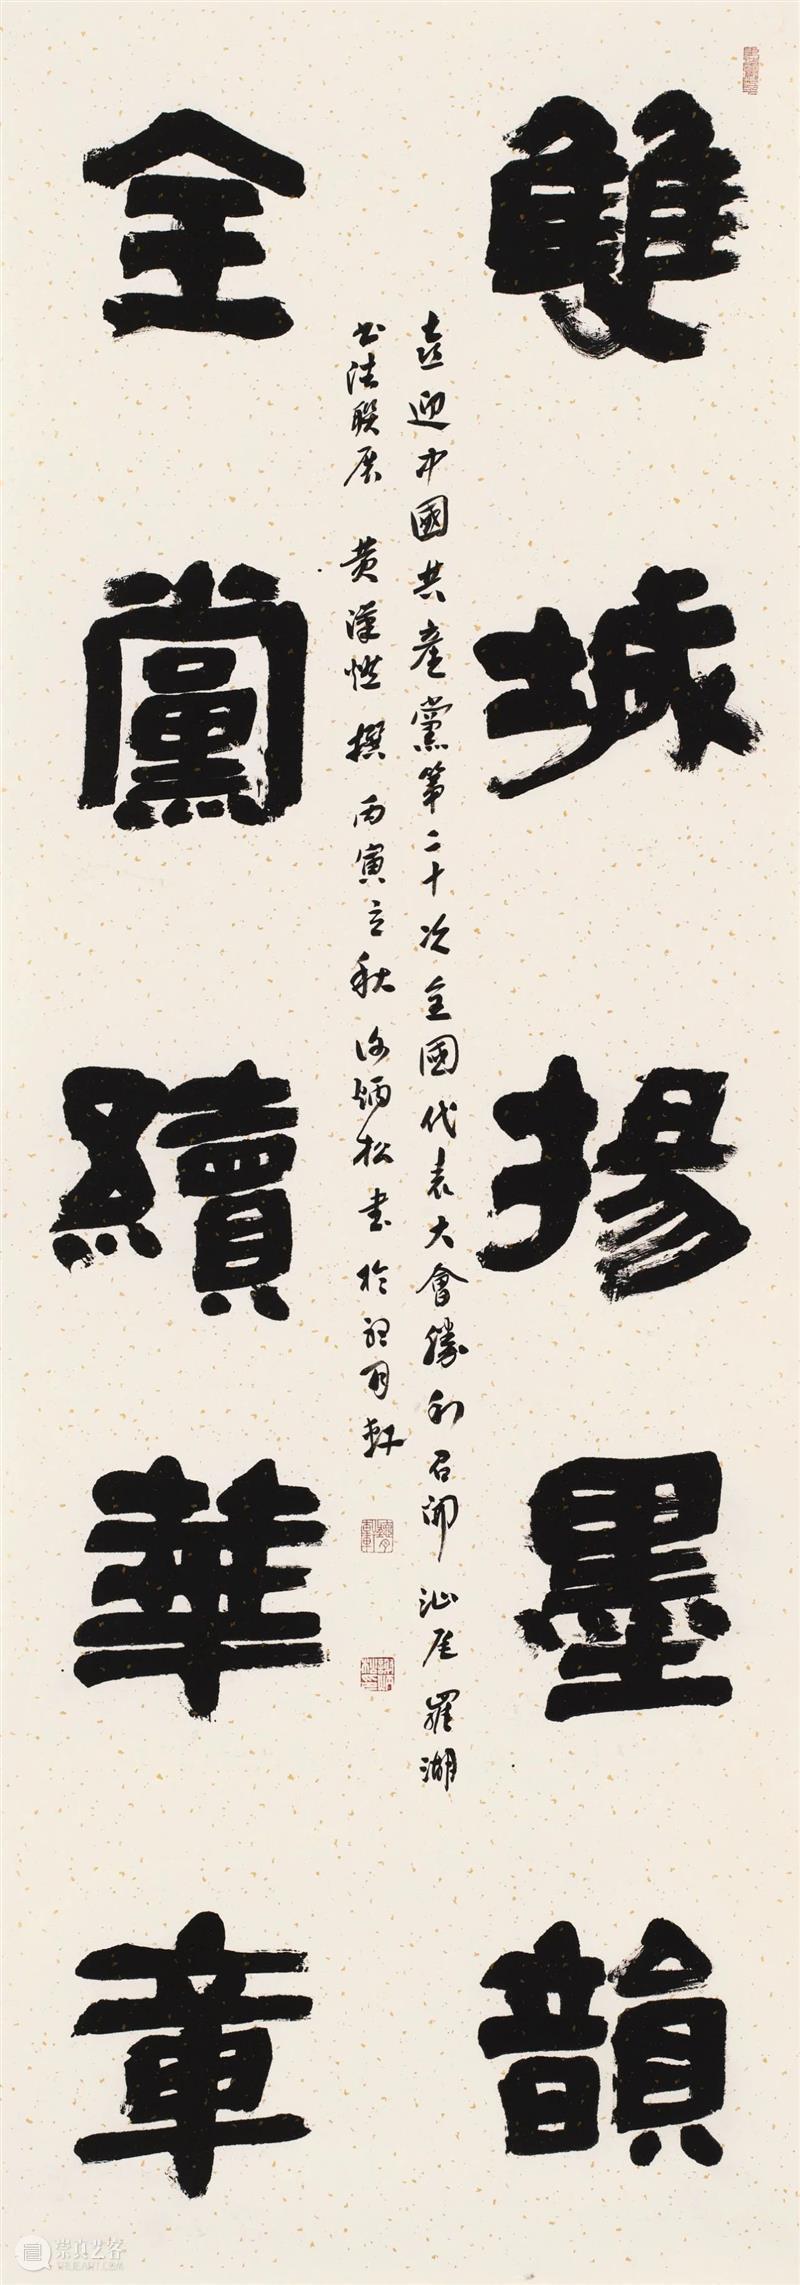 雙城揚墨韻
全黨續華章
喜迎中國共產黨第二十次全國代表大會勝利召開 汕尾羅湖
书法联展 黄漢 撰 丙寅立秋 炳松書於 月軒
崇真艺客